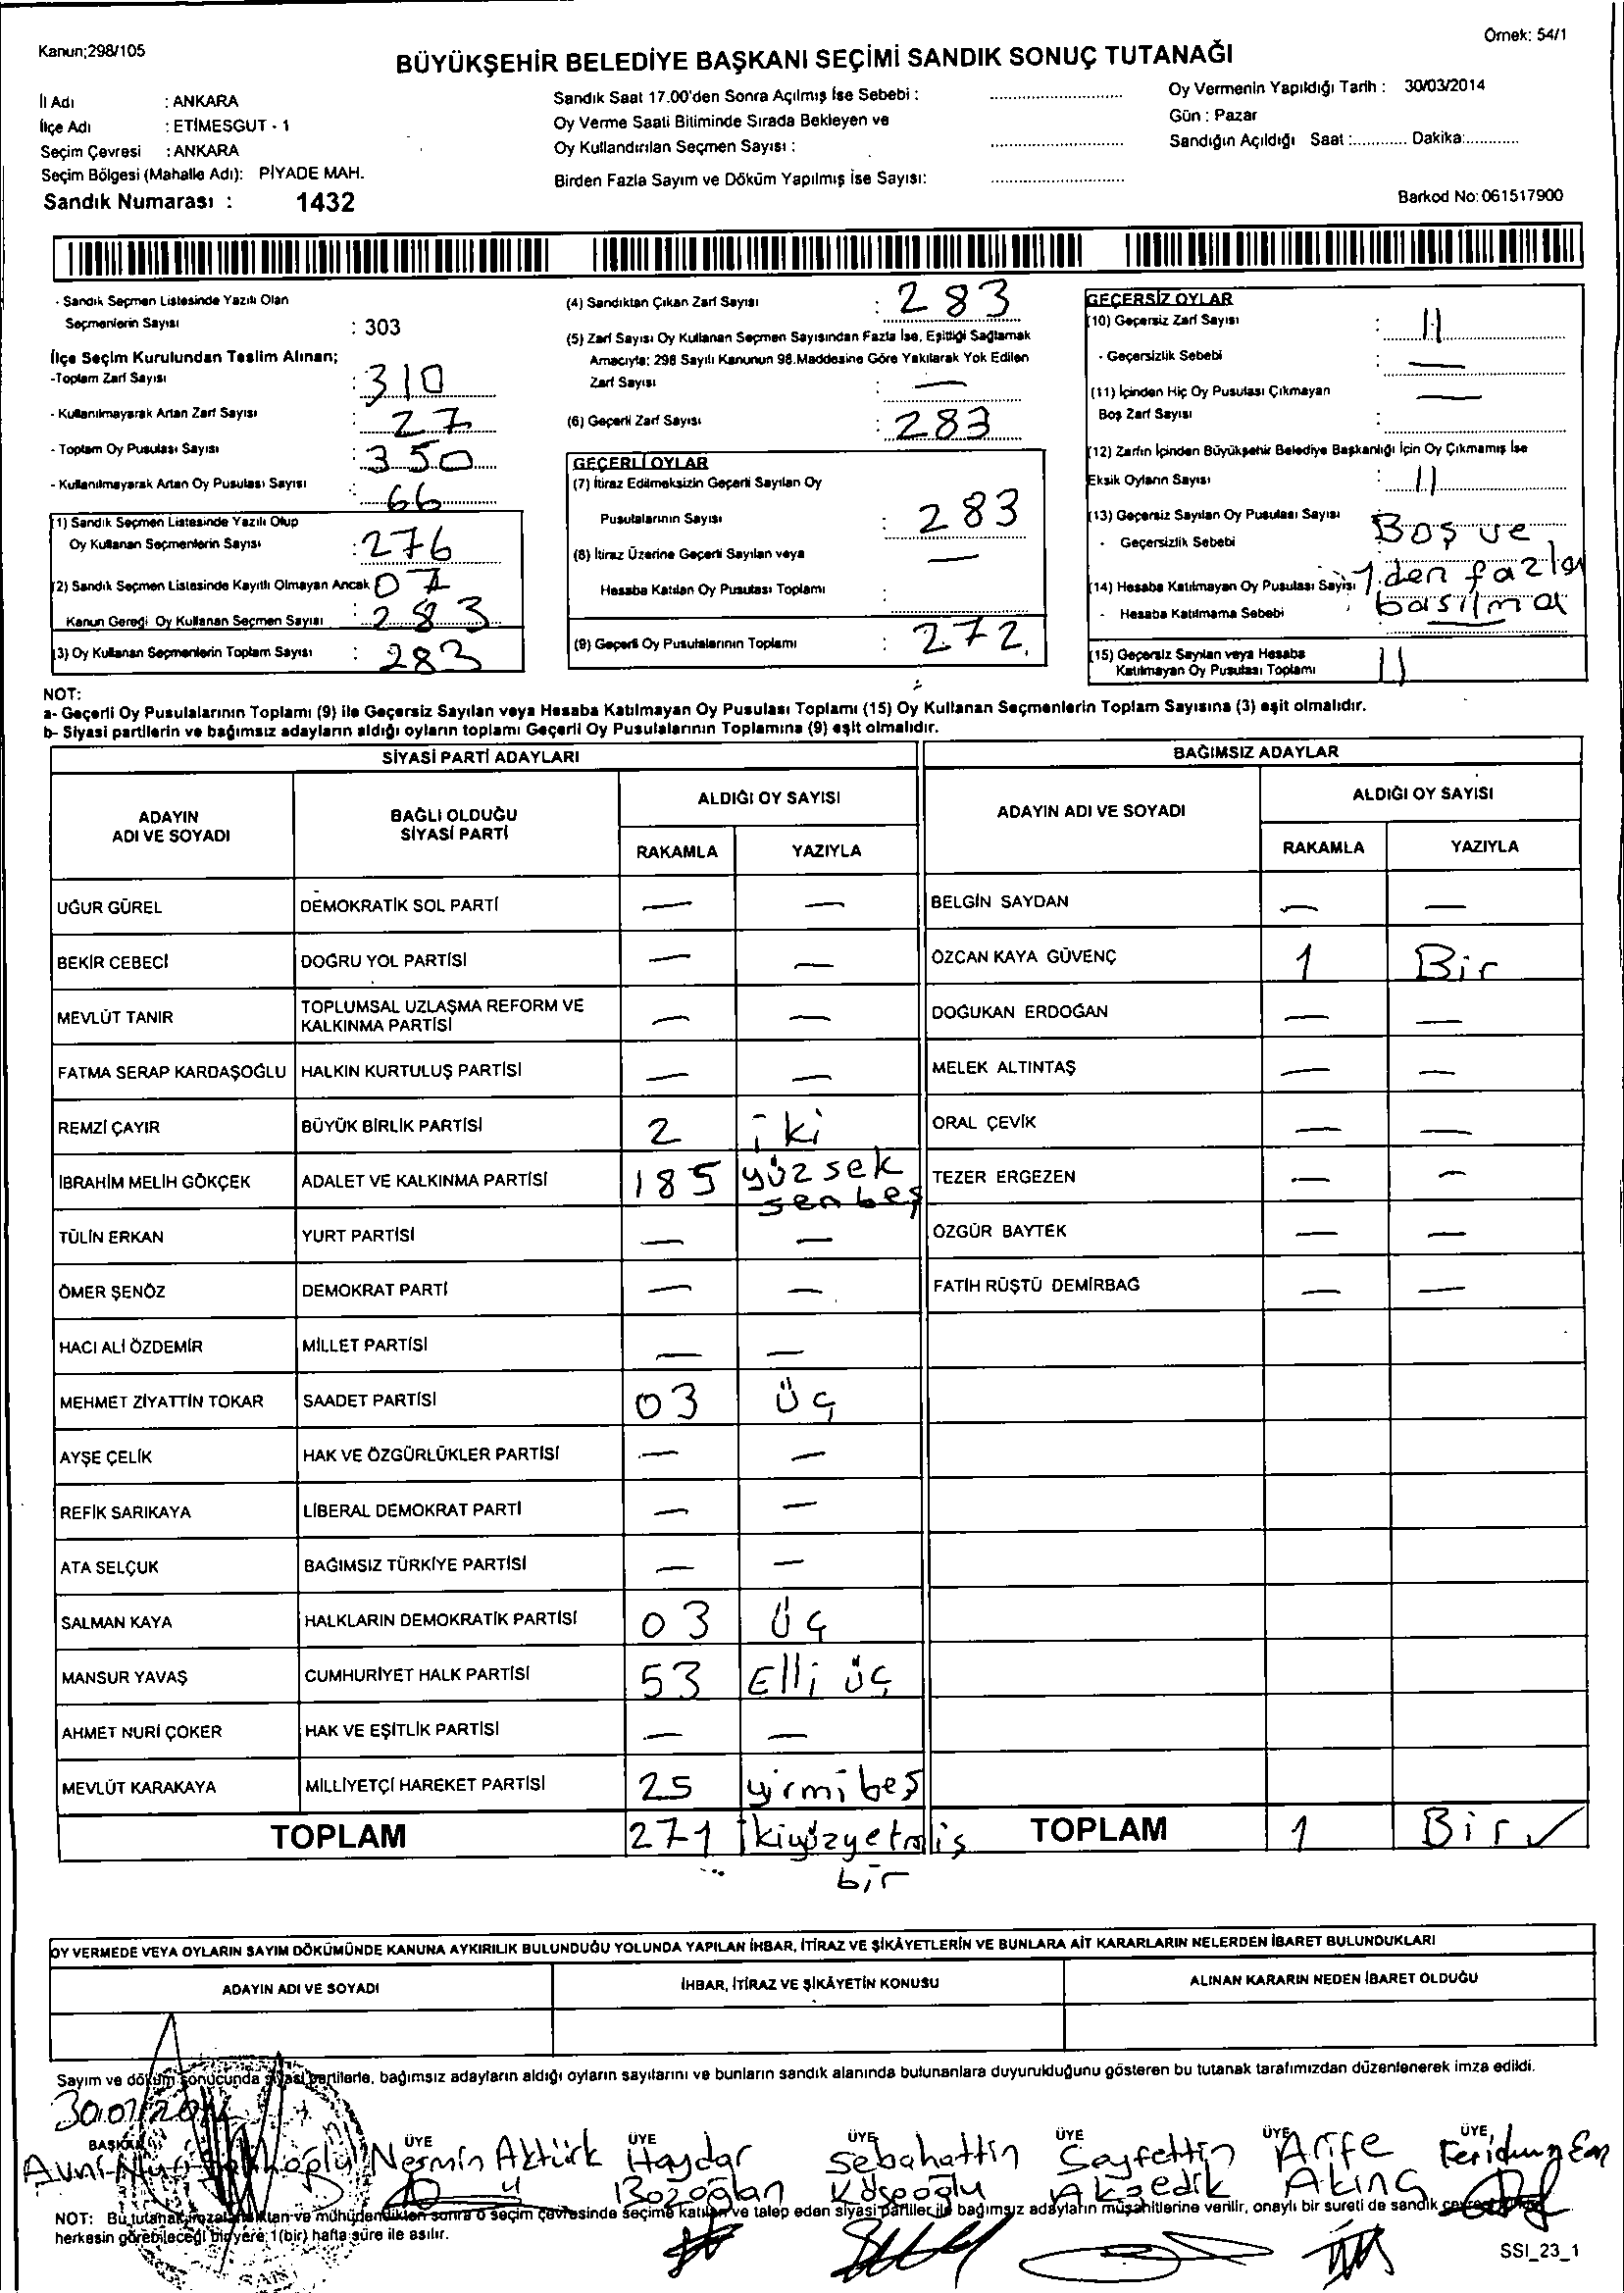 Kanun;298/105
Örnek: 54/1
BÜYÜKŞEHİR BELEDİYE BAŞKANI SEÇİMİ SANDIK SONUÇ TUTANAĞI
İl Adı : ANKARA
İlçe Adı : ETİMESGUT - 1
Seçim Çevresi : ANKARA
Seçim Bölgesi (Mahalle Adı): PİYADE MAH.
Sandık Numarası : 1432
Sandık Saat 17.00'den Sonra Açılmış İse Sebebi :
Oy Verme Saati Bitiminde Sırada Bekleyen ve
Oy Kullandırılan Seçmen Sayısı :
Birden Fazla Sayım ve Döküm Yapılmış ise Sayısı:
Oy Vermenin Yapıldığı Tarih : 30/03/2014
Gün : Pazar
Sandığın Açıldığı Saat :............ Dakika:............
Barkod No: 061517900
- Sandık Seçmen Listesinde Yazılı Olan
Seçmenlerin Sayısı : 303
İlçe Seçim Kurulundan Teslim Alınan;
-Toplam Zarf Sayısı : 310
- Kullanılmayarak Artan Zarf Sayısı : 27
- Toplam Oy Pusulası Sayısı : 350
- Kullanılmayarak Artan Oy Pusulası Sayısı : 66
(1) Sandık Seçmen Listesinde Yazılı Olup
Oy Kullanan Seçmenlerin Sayısı : 276
(2) Sandık Seçmen Listesinde Kayıtlı Olmayan Ancak 07
Kanun Gereği Oy Kullanan Seçmen Sayısı : 283
(3) Oy Kullanan Seçmenlerin Toplam Sayısı : 283
(4) Sandıktan Çıkan Zarf Sayısı : 283
(5) Zarf Sayısı Oy Kullanan Seçmen Sayısından Fazla İse, Eşitliği Sağlamak
Amacıyla; 298 Sayılı Kanunun 98.Maddesine Göre Yakılarak Yok Edilen
Zarf Sayısı : —
(6) Geçerli Zarf Sayısı : 283
GEÇERLİ OYLAR
(7) İtiraz Edilmeksizin Geçerli Sayılan Oy
Pusulalarının Sayısı : 283
(8) İtiraz Üzerine Geçerli Sayılan veya —
Hesaba Katılan Oy Pusulası Toplamı :
(9) Geçerli Oy Pusulalarının Toplamı : 272
GEÇERSİZ OYLAR
(10) Geçersiz Zarf Sayısı : 11
- Geçersizlik Sebebi : —
(11) İçinden Hiç Oy Pusulası Çıkmayan —
Boş Zarf Sayısı :
(12) Zarfın İçinden Büyükşehir Belediye Başkanlığı İçin Oy Çıkmamış İse
Eksik Oyların Sayısı : 11
(13) Geçersiz Sayılan Oy Pusulası Sayısı Boş ve
- Geçersizlik Sebebi
(14) Hesaba Katılmayan Oy Pusulası Sayısı 1.den fazla
- Hesaba Katılmama Sebebi : basılma
(15) Geçersiz Sayılan veya Hesaba
Katılmayan Oy Pusulası Toplamı 11
NOT:
a- Geçerli Oy Pusulalarının Toplamı (9) ile Geçersiz Sayılan veya Hesaba Katılmayan Oy Pusulası Toplamı (15) Oy Kullanan Seçmenlerin Toplam Sayısına (3) eşit olmalıdır.
b- Siyasi partilerin ve bağımsız adayların aldığı oyların toplamı Geçerli Oy Pusulalarının Toplamına (9) eşit olmalıdır.
SİYASİ PARTİ ADAYLARI
BAĞIMSIZ ADAYLAR
ADAYIN
ADI VE SOYADI
BAĞLI OLDUĞU
SİYASİ PARTİ
ALDIĞI OY SAYISI
RAKAMLA YAZIYLA
ADAYIN ADI VE SOYADI
ALDIĞI OY SAYISI
RAKAMLA YAZIYLA
UĞUR GÜREL DEMOKRATİK SOL PARTİ — — BELGİN SAYDAN — —
BEKİR CEBECİ DOĞRU YOL PARTİSİ — — ÖZCAN KAYA GÜVENÇ 1 Bir
MEVLÜT TANIR TOPLUMSAL UZLAŞMA REFORM VE
KALKINMA PARTİSİ — — DOĞUKAN ERDOĞAN — —
FATMA SERAP KARDAŞOĞLU HALKIN KURTULUŞ PARTİSİ — — MELEK ALTINTAŞ — —
REMZİ ÇAYIR BÜYÜK BİRLİK PARTİSİ 2 iki ORAL ÇEVİK — —
İBRAHİM MELİH GÖKÇEK ADALET VE KALKINMA PARTİSİ 185 yüzsek
senbeş TEZER ERGEZEN — —
TÜLİN ERKAN YURT PARTİSİ — — ÖZGÜR BAYTEK — —
ÖMER ŞENÖZ DEMOKRAT PARTİ — — FATİH RÜŞTÜ DEMİRBAĞ — —
HACI ALİ ÖZDEMİR MİLLET PARTİSİ — —
MEHMET ZİYATTİN TOKAR SAADET PARTİSİ 03 üç
AYŞE ÇELİK HAK VE ÖZGÜRLÜKLER PARTİSİ — —
REFİK SARIKAYA LİBERAL DEMOKRAT PARTİ — —
ATA SELÇUK BAĞIMSIZ TÜRKİYE PARTİSİ — —
SALMAN KAYA HALKLARIN DEMOKRATİK PARTİSİ 03 üç
MANSUR YAVAŞ CUMHURİYET HALK PARTİSİ 53 Elli üç
AHMET NURİ ÇOKER HAK VE EŞİTLİK PARTİSİ — —
MEVLÜT KARAKAYA MİLLİYETÇİ HAREKET PARTİSİ 25 yirmibeş
TOPLAM 271 ikiyüzyetmiş TOPLAM 1 Bir ✓
bir
OY VERMEDE VEYA OYLARIN SAYIM DÖKÜMÜNDE KANUNA AYKIRILIK BULUNDUĞU YOLUNDA YAPILAN İHBAR, İTİRAZ VE ŞİKÂYETLERİN VE BUNLARA AİT KARARLARIN NELERDEN İBARET BULUNDUKLARI
ADAYIN ADI VE SOYADI İHBAR, İTİRAZ VE ŞİKÂYETİN KONUSU ALINAN KARARIN NEDEN İBARET OLDUĞU
Sayım ve döküm sonucunda siyasi partilerle, bağımsız adayların aldığı oyların sayılarını ve bunların sandık alanında bulunanlara duyurulduğunu gösteren bu tutanak tarafımızdan düzenlenerek imza edildi.
BAŞKAN ÜYE ÜYE ÜYE ÜYE ÜYE ÜYE
Nesmin Aktürk Haydar Sebahattin Seyfettin Arife Feridun
Bozoğlan Köseoğlu Akgedik Akınç
NOT: Bu tutanak imzalandıktan ve mühürlendikten sonra o seçim çevresinde seçime katılan ve talep eden siyasi partiler ile bağımsız adayların müşahitlerine verilir, onaylı bir sureti de sandık
herkesin görebileceği bir yere 1(bir) hafta süre ile asılır.
SSI_23_1